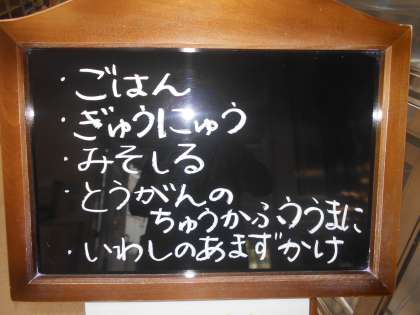 ・ごはん
・ぎゅうにゅう
・みそしる
・とうがんの
ちゅうかふううまに
・いわしのあまずかけ